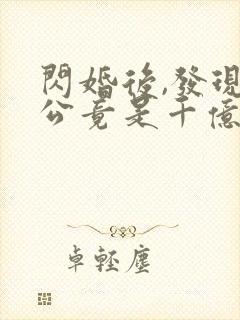 閃婚後,發現
公竟是千億
卓輕塵